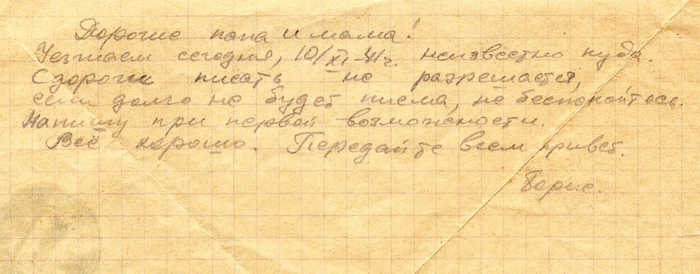 Дорогие папа и мама!
Уезжаем сегодня, 10/XI-41г. неизвестно куда.
С дороги писать не разрешается,
если долго не будет писма, не беспокойтесь.
Напишу при первой возможности.
Всё хорошо. Передайте всем привет.
Борис.